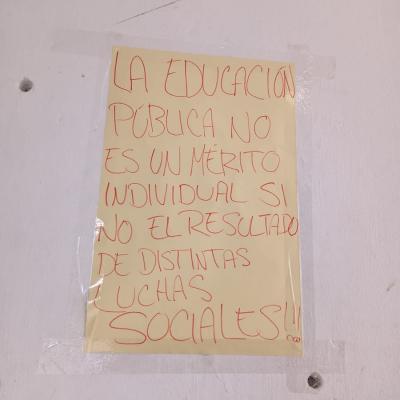 LA EDUCACIÓN
PÚBLICA NO
ES UN MÉRITO
INDIVIDUAL SI
NO EL RESULTADO
DE DISTINTAS
LUCHAS
SOCIALES!!